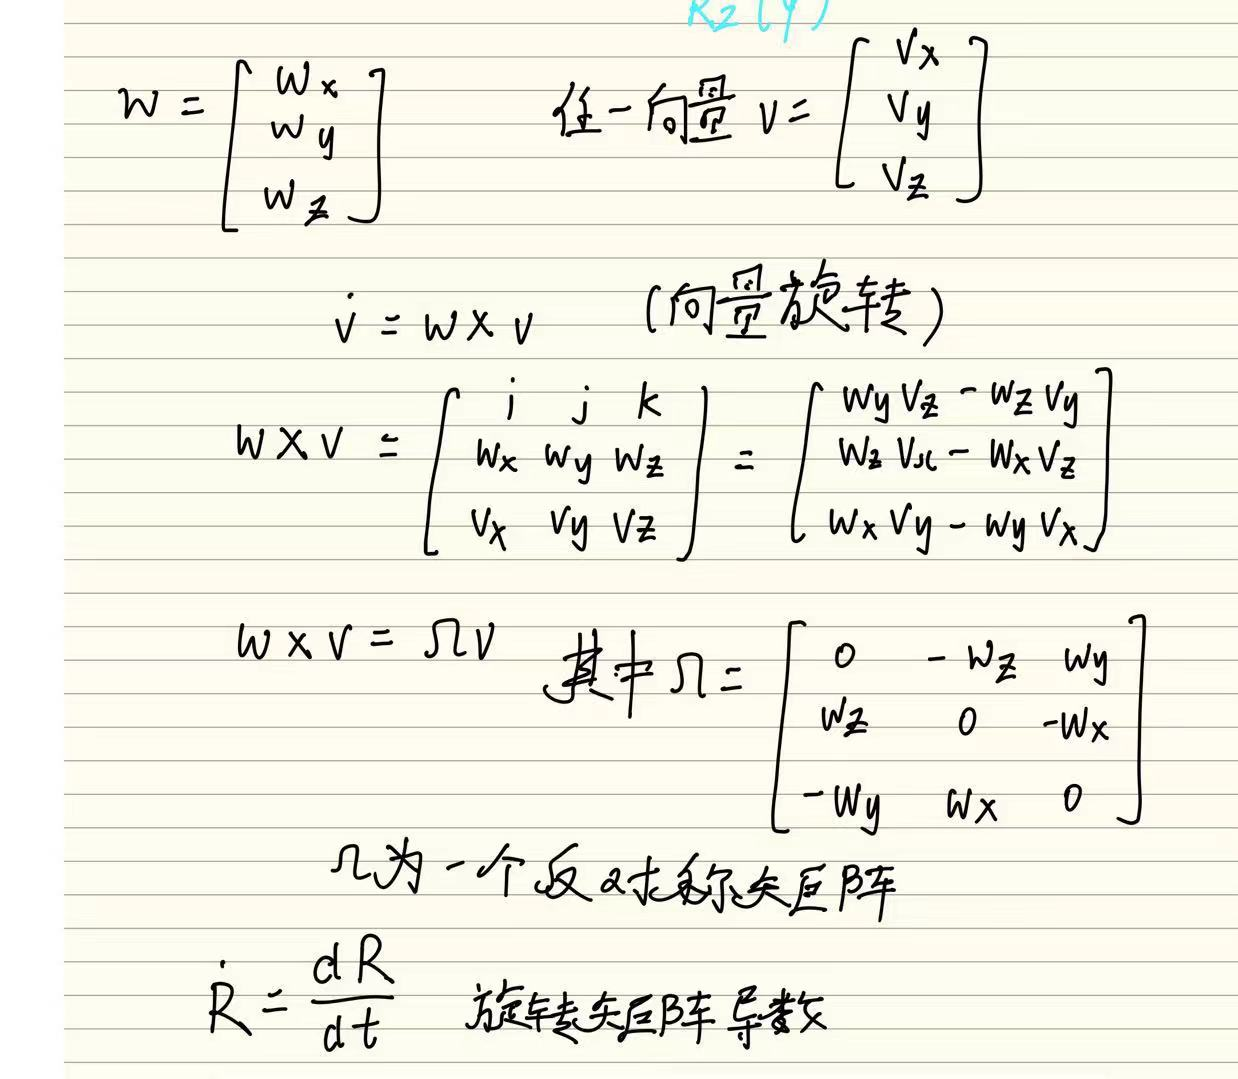 Rz(φ)
w = [ wx wy wz ] 任一向量 v = [ vx vy vz ]
v̇ = w × v (向量旋转)
w × v = [ i j k ; wx wy wz ; vx vy vz ] = [ wy vz - wz vy ; wz vx - wx vz ; wx vy - wy vx ]
w × v = Ωv 其中 Ω = [ 0 -wz wy ; wz 0 -wx ; -wy wx 0 ]
Ω为一个反对称矩阵
Ṙ = dR/dt 旋转矩阵导数